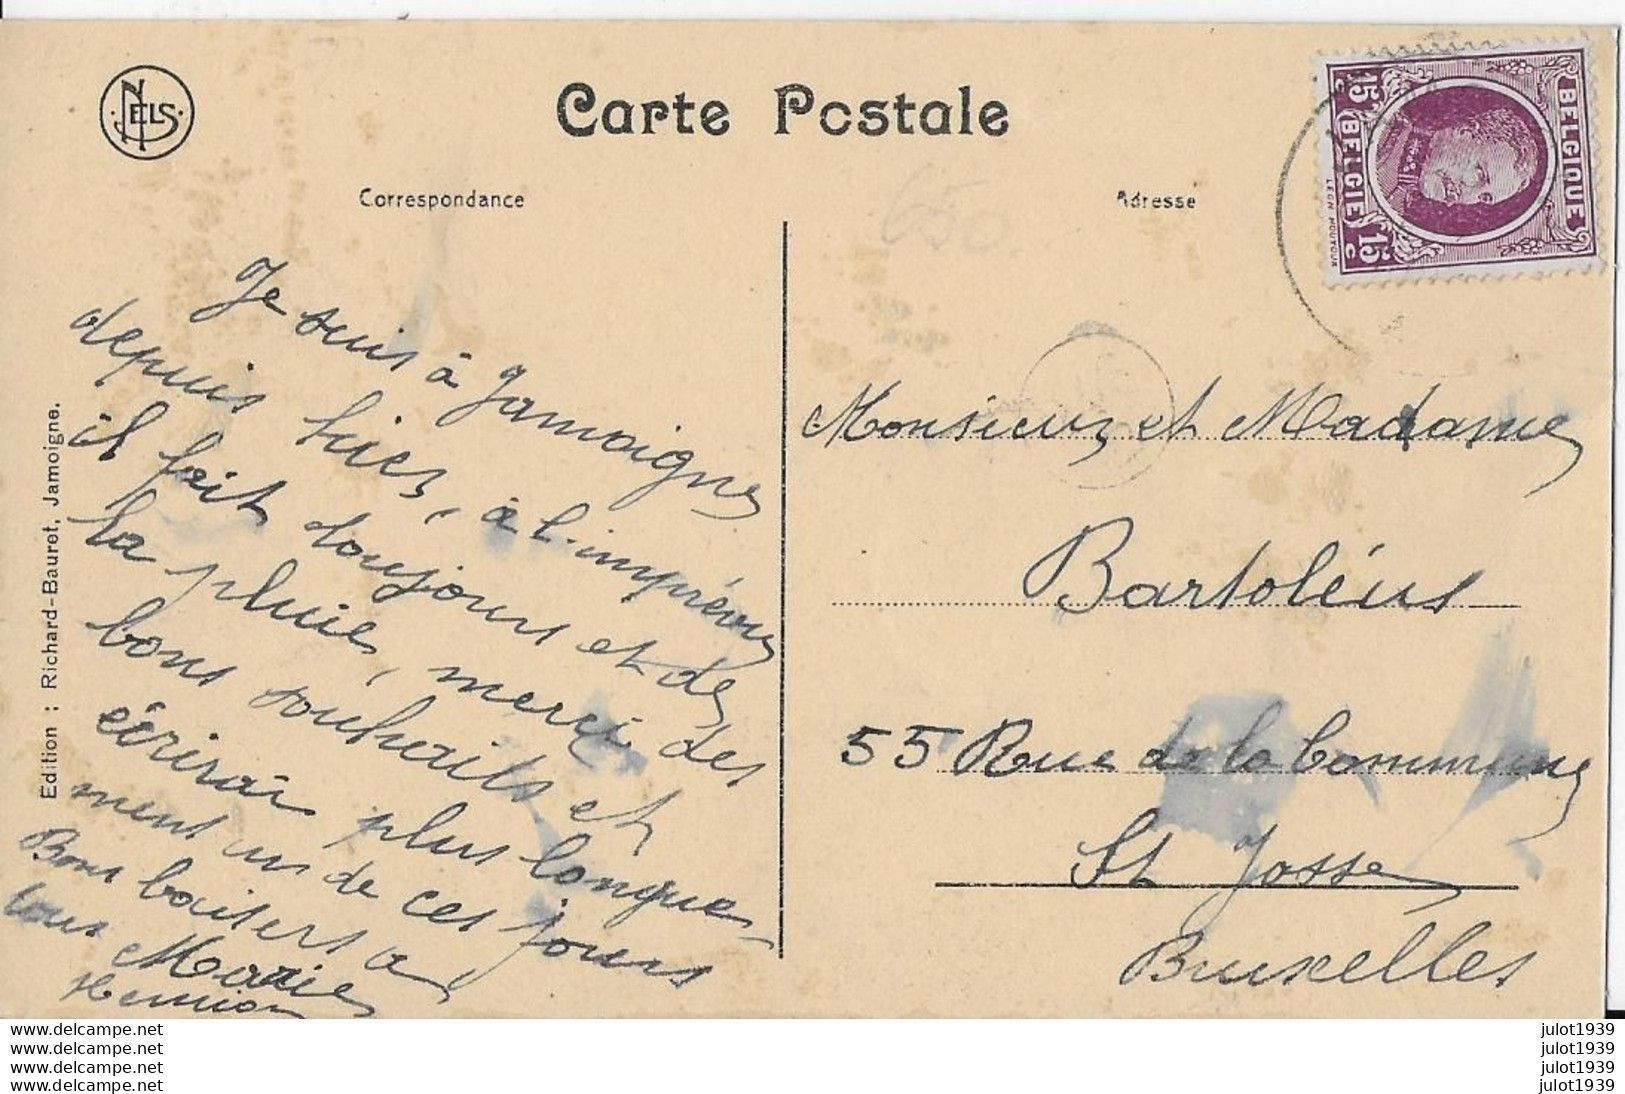 NELS
Carte Postale
Correspondance
Adresse
BELGIQUE
15 BELGIE 15
c c
Edition : Richard-Bauret, Jamoigne.
650
Je suis à Jamoigne
depuis hier, à l'imprévu
il fait toujours et de
la pluie, merci des
bons souhaits et
écrirai plus longue-
ment un de ces jours
Bons baisers a
tous Marie
Monsieur et Madame
Bartoléus
55 Rue de la Commune
St Josse
Bruxelles
www.delcampe.net julot1939
www.delcampe.net julot1939
www.delcampe.net julot1939
www.delcampe.net julot1939